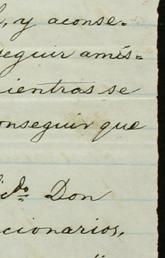 , y aconse-
seguir amis-
ientras se
onseguir que
do. Don
cionarios,